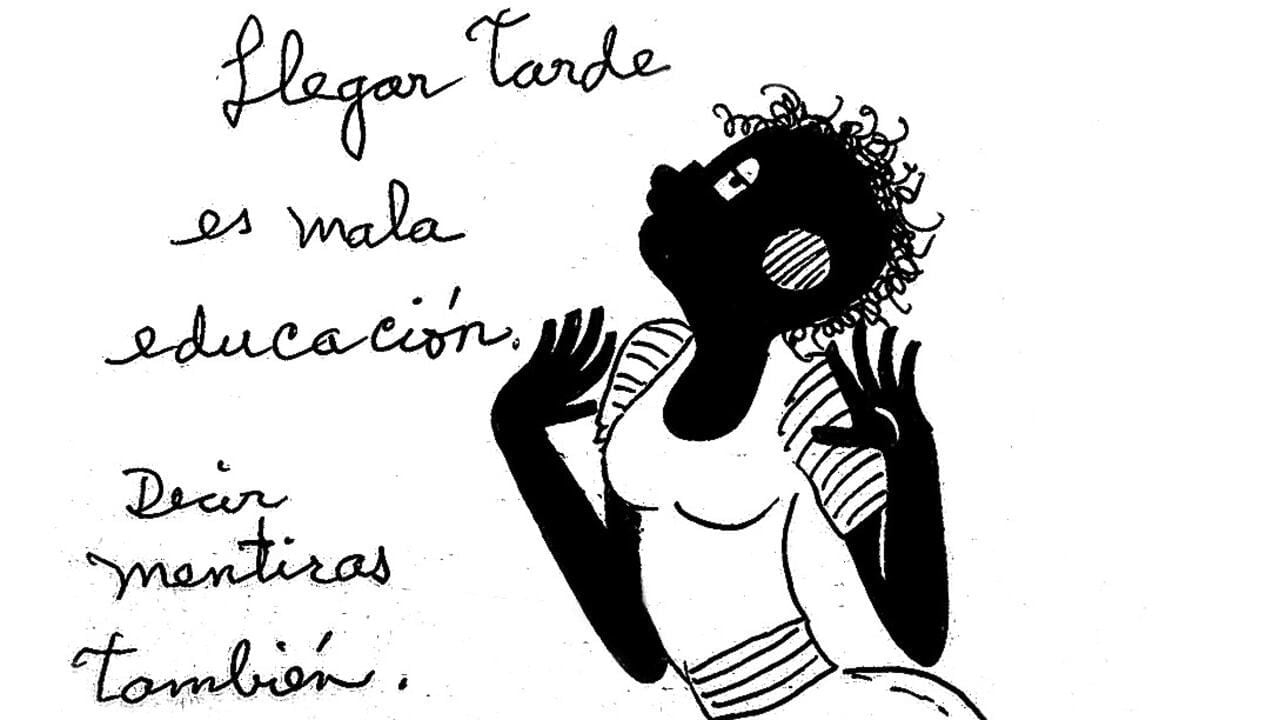 Llegar Tarde
es mala
educación.
Decir
mentiras
También.